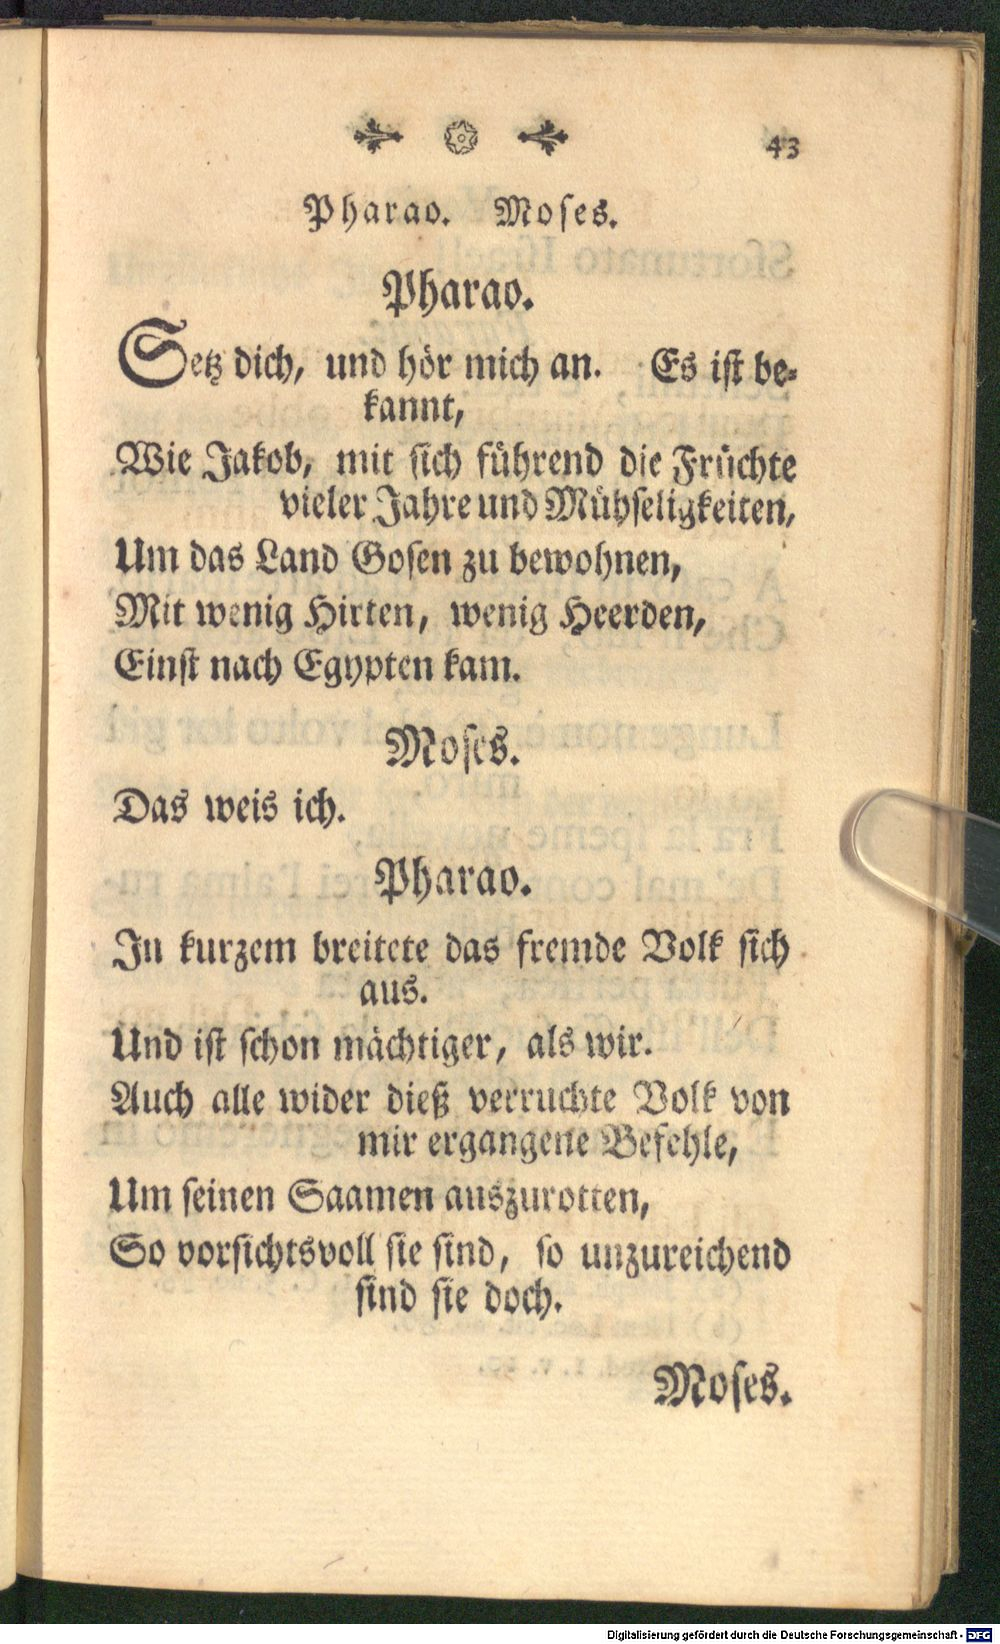 43
Pharao. Moses.
Pharao.
Setz dich, und hör mich an. Es ist be-
kannt,
Wie Jakob, mit sich führend die Früchte
vieler Jahre und Mühseligkeiten,
Um das Land Gosen zu bewohnen,
Mit wenig Hirten, wenig Heerden,
Einst nach Egypten kam.
Moses.
Das weis ich.
Pharao.
In kurzem breitete das fremde Volk sich
aus.
Und ist schon mächtiger, als wir.
Auch alle wider dieß verruchte Volk von
mir ergangene Befehle,
Um seinen Saamen auszurotten,
So vorsichtsvoll sie sind, so unzureichend
sind sie doch.
Moses.
Digitalisierung gefördert durch die Deutsche Forschungsgemeinschaft - DFG